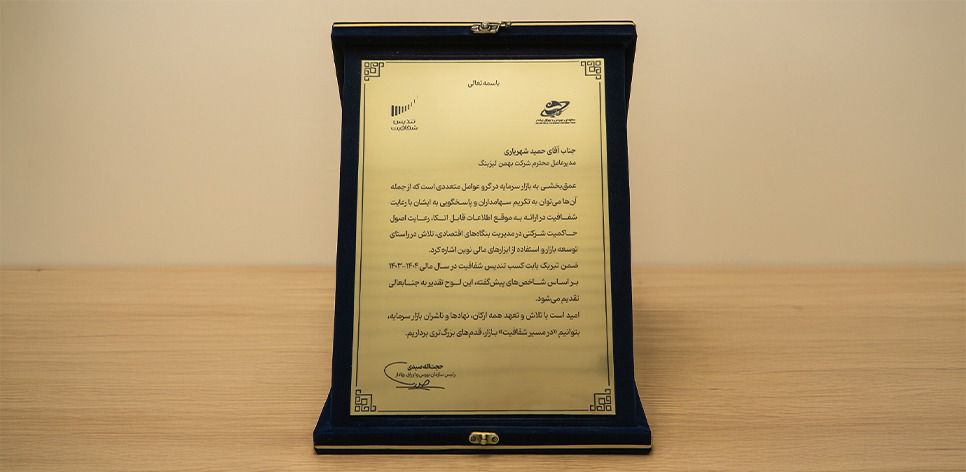 باسمه تعالی
تندیس
شفافیت
سازمان بورس و اوراق بهادار
جناب آقای حمید شهریاری
مدیرعامل محترم شرکت بهمن لیزینگ
عمق‌بخشی به بازار سرمایه در گرو عوامل متعددی است که از جمله
آن‌ها می‌توان به تکریم سهامداران و پاسخگویی به ایشان با رعایت
شفافیت در ارائه به موقع اطلاعات قابل اتکا، رعایت اصول
حاکمیت شرکتی در مدیریت بنگاه‌های اقتصادی، تلاش در راستای
توسعه بازار و استفاده از ابزارهای مالی نوین اشاره کرد.
ضمن تبریک بابت کسب تندیس شفافیت در سال مالی ۱۴۰۴-۱۴۰۳
بر اساس شاخص‌های پیش‌گفته، این لوح تقدیر به جنابعالی
تقدیم می‌شود.
امید است با تلاش و تعهد همه ارکان، نهادها و ناشران بازار سرمایه،
بتوانیم «در مسیر شفافیت» بازار، قدم‌های بزرگ‌تری برداریم.
حجت‌اله صیدی
رئیس سازمان بورس و اوراق بهادار